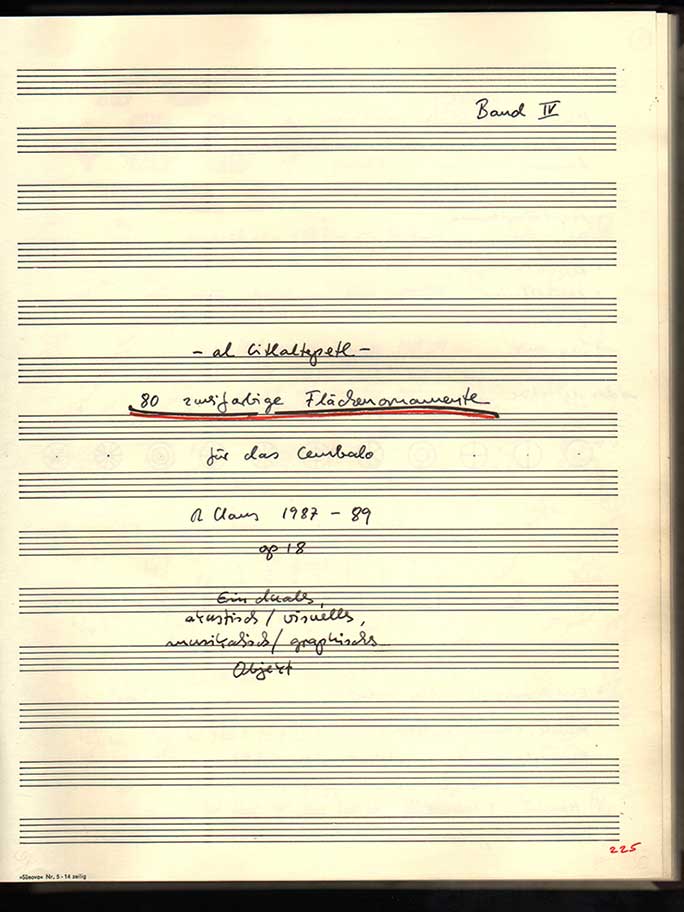 Band IV
- al Citlaltepetl -
80 zweifarbige Flächenornamente
für das Cembalo
R Claus 1987 - 89
op 18
Ein duales,
akustisch / visuelles,
musikalisch / graphisches
Objekt
225
»Sünova« Nr. 5 - 14 zeilig